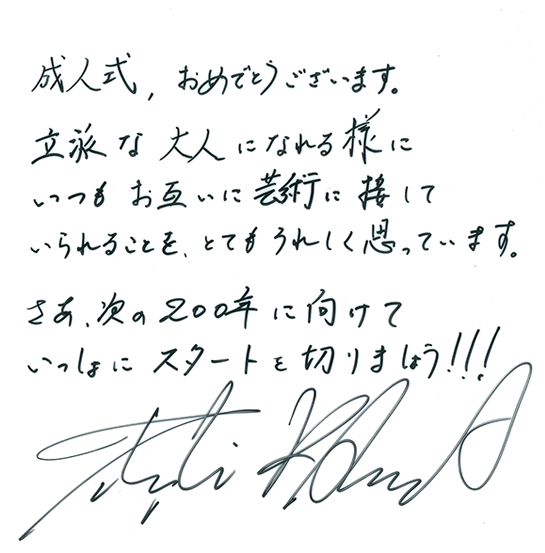 成人式, おめでとうございます。
立派な大人になれる様に
いつもお互いに芸術に接して
いられることを、とてもうれしく思っています。
さあ、次の200年に向けて
いっしょにスタートを切りましょう!!!